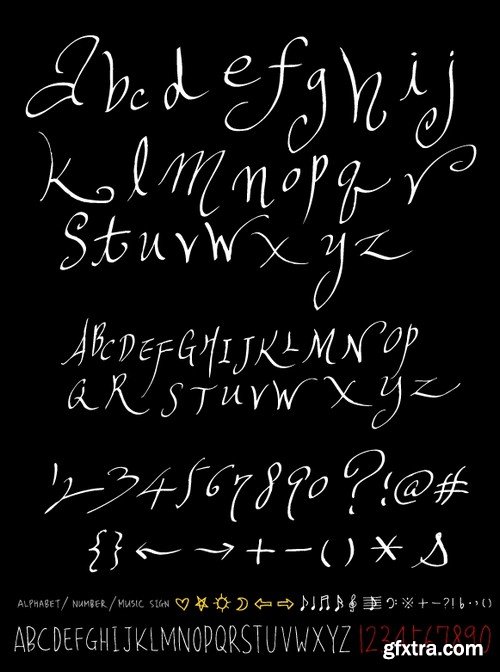 Abcdefghij
klmnopqr
Stuvwxyz
ABCDEFGHIJKLMNOP
QRSTUVWXYZ
1234567890?!@#
{}←→+-()*
ALPHABET/NUMBER/MUSIC SIGN ♡☆☼☽⇦⇨♪♫ ※+-?!
ABCDEFGHIJKLMNOPQRSTUVWXYZ 1234567890
gfxtra.com